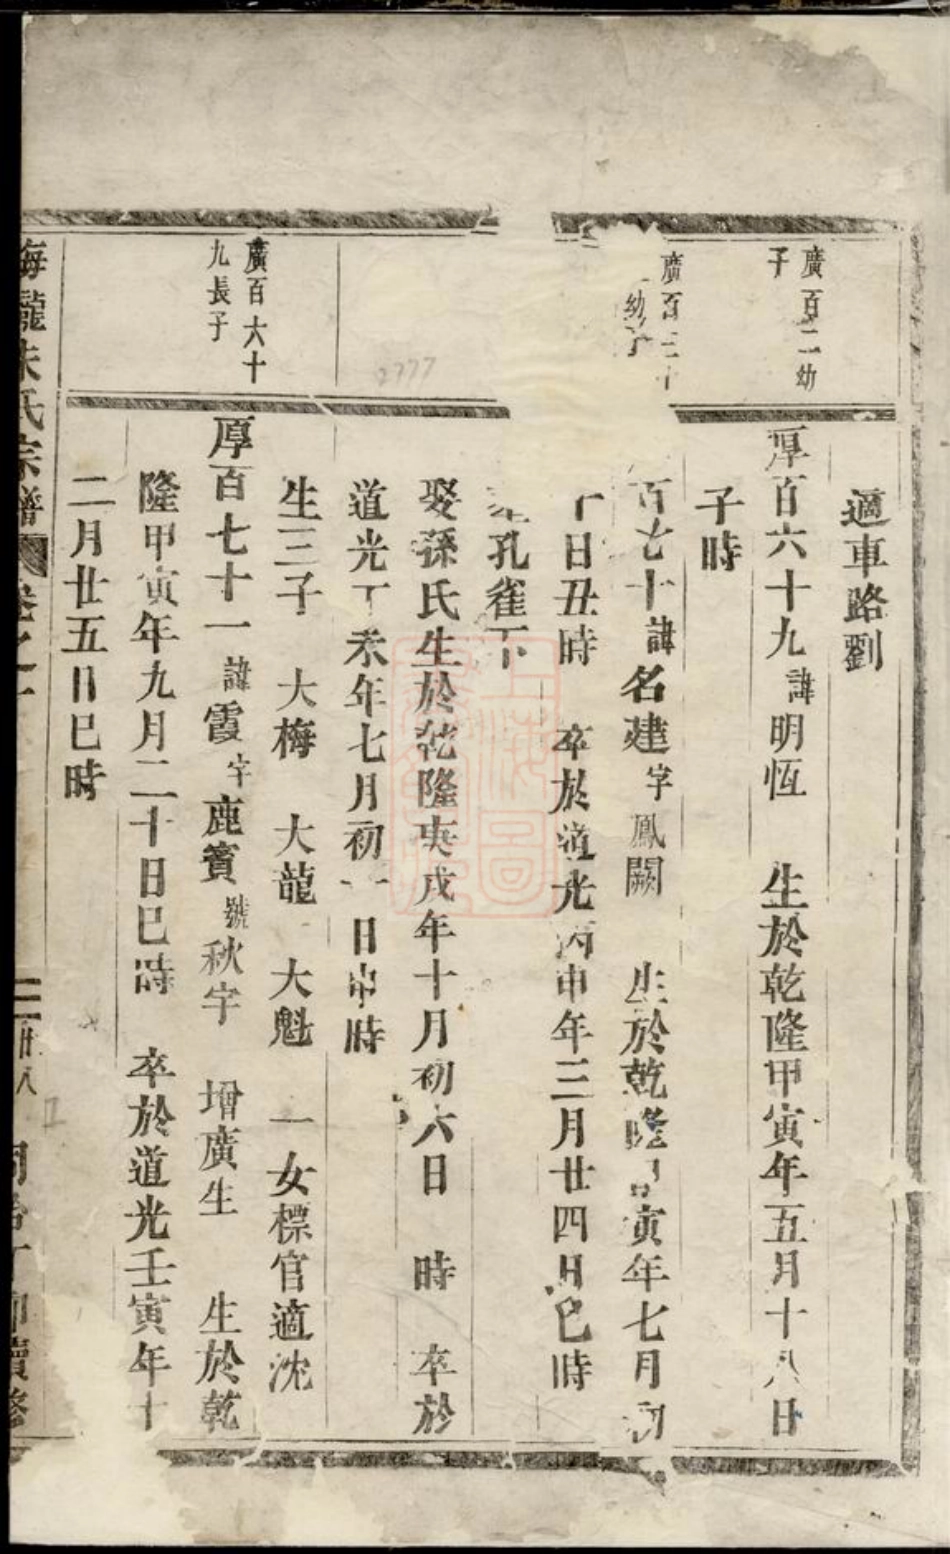 適車路劉
廣百二幼
子
厚百六十九諱明恆 生於乾隆甲寅年五月十八日
子時
廣百三十
幼子
百七十諱名建字鳳闕 生於乾隆寅年七月初
十日丑時 卒於道光丙申年三月廿四日巳時
孔雀下
娶孫氏生於乾隆庚戌年十月初六日 時 卒於
道光丁未年七月初一日申時
生三子 大梅 大龍 大魁 一女標官適沈
廣百六十
九長子
厚百七十一諱霞字鹿賓號秋宇 增廣生 生於乾
隆甲寅年九月二十日巳時 卒於道光壬寅年十
二月廿五日巳時
海瀧朱氏宗譜 卷之一 二 廿八 續修
2777